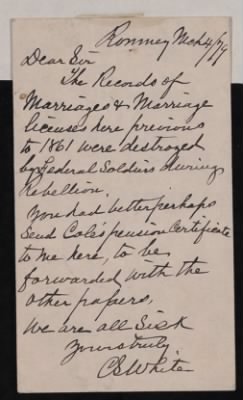 Romney Mch 4/79
Dear Sir
The Records of
Marriages & Marriage
licenses here previous
to 1861 were destroyed
by Federal Soldiers during
Rebellion.
You had better perhaps
Send Coles pension Certificate
to me here, to be
forwarded with the
other papers.
We are all Sick
Yours truly
CSWhite